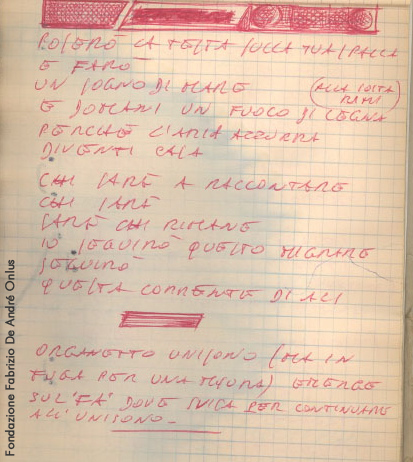 POSERÒ LA TESTA SULLA TUA SPALLA
E FARÒ
UN SOGNO DI MARE
E DOMANI UN FUOCO DI LEGNA
PERCHÈ L'ARIA AZZURRA
DIVENTI CASA
CHI SARÀ A RACCONTARE
CHI SARÀ
SARÀ CHI RIMANE
IO SEGUIRÒ QUESTO MIGRARE
SEGUIRÒ
QUESTA CORRENTE DI ALI
ORGANETTO UNISONO (MA IN
FUGA PER UNA MISURA) EMERGE
SUL "FA" DOVE PER CONTINUARE
ALL'UNISONO_
Fondazione Fabrizio De André Onlus